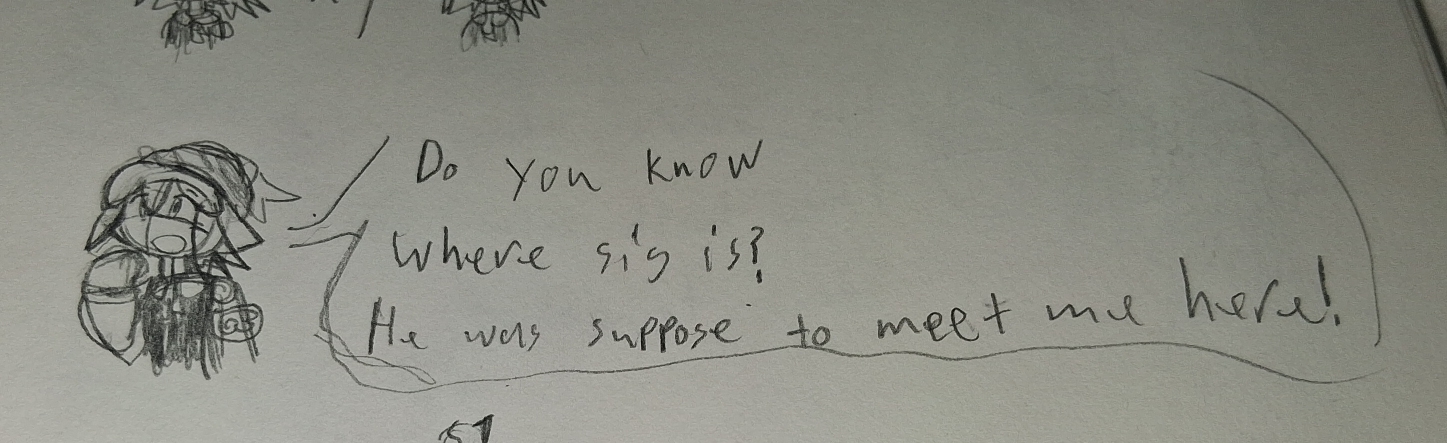 Do you know
where sig is?
He was suppose to meet me here!